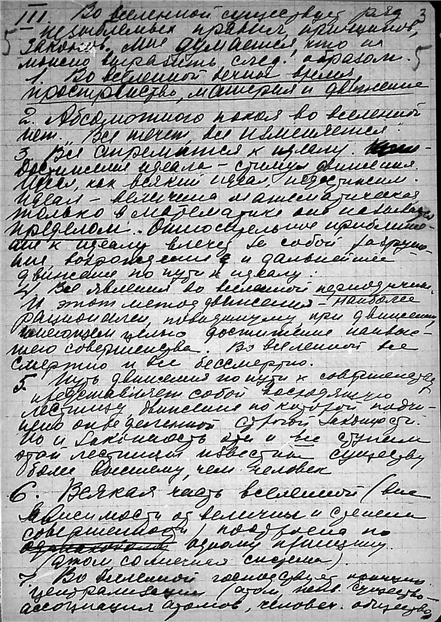 III. Во вселенной существует ряд 3
незыблемых правил, принципов,
законов. Мне думается, что их
можно выразить след. образом.
1. Во вселенной вечно время,
пространство, материя и движение
2. Абсолютного покоя во вселенной
нет. Все течет, все изменяется.
3. Все стремится к идеалу
Достижения идеала – стимул движения.
Идеал, как всякий идеал недостижим.
Идеал – величина математическая
только в математике она называется
пределом. Относительное приближе-
ние к идеалу влечет за собой разруше-
ния, возрождения и дальнейшее
движение по пути к идеалу.
4. Все явления во вселенной периодичны.
И этот метод движения – наиболее
рационален, повидимому при движении,
имеющем целью достижение наивыс-
шего совершенства. Во вселенной все
смертно и все бессмертно.
5. Путь движения по пути к совершенству
представляет собой восходящую
лестницу, движение по которой подчи-
нено определенной строгой законност.
Но и законность эта и все ступени
этой лестницы известны существу
более высшему, чем человек
6. Всякая часть вселенной (вне
зависимости от величины и степени
совершенства) построена по
одному принципу
(атом, солнечная система).
7. Во вселенной господствует принцип
централизации (атом, существо
ассоциация атомов, человек. общество